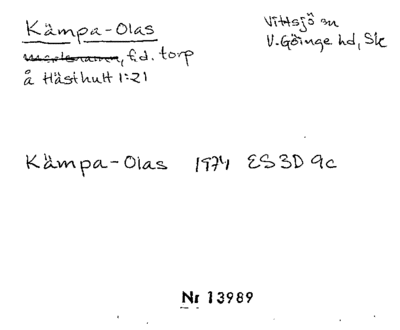 Kämpa-Olas
Vittsjö sn
V. Göinge hd, Sk
f.d. torp
å Hästhult 1:21
Kämpa-Olas 1974 ES 3D 9c
Nr 13989